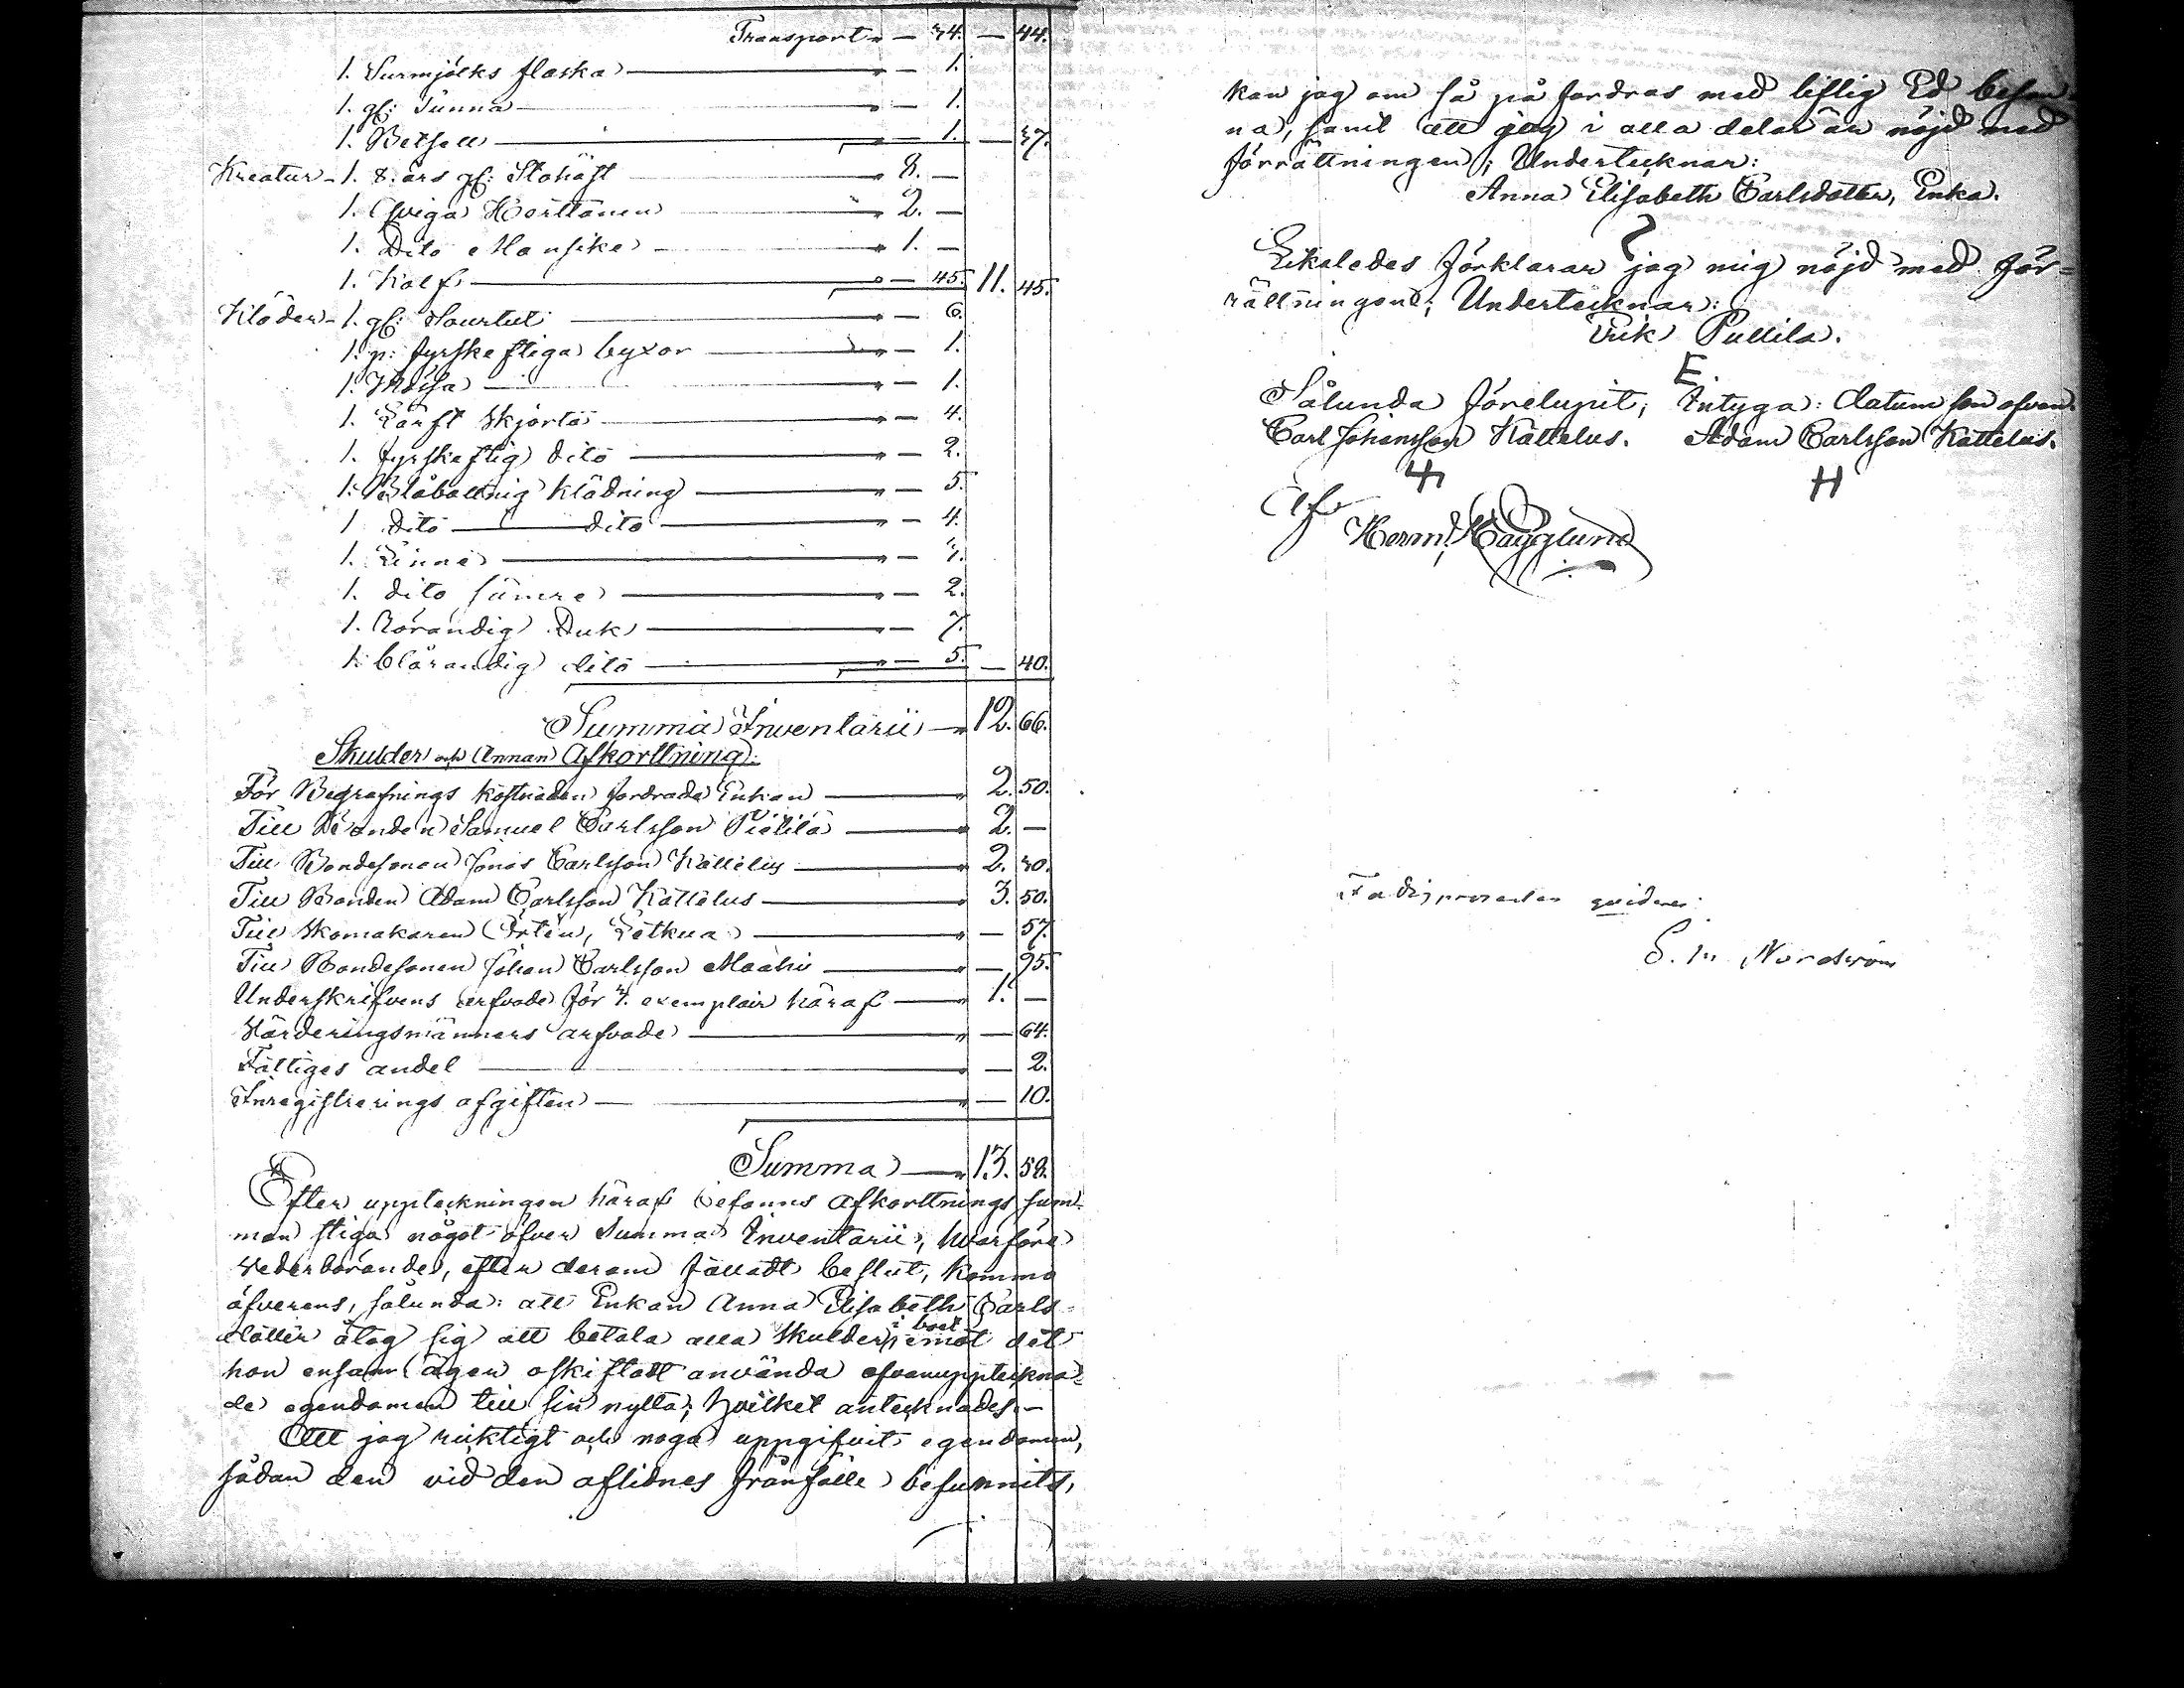 Transport " — 34. — 44.
1. Surmjölks flaska " — 1.
1. gl: Tunna " — 1.
1. Betsell " — 1. — 37.
Kreatur - 1. 8. års gl: Stohäst " 8. —
1. Qviga Horttanen " 2. —
1. Dito Mansike " 1. —
1. Kalf " — 45. 11. 45.
Kläder - 1. gl: Sourtut " — 6.
1. p: fyrskeftiga byxor " — 1.
1. Mössa " — 1.
1. Lärft Skjorta " — 4.
1. fyrskeftig dito " — 2.
1. Blåballnig Klädning " — 5.
1 dito dito " — 4.
1. Linne " — 3.
1. dito sämre " — 2.
1. Rörandig Duk " — 7.
1. blårandig dito " — 5. — 40.
Summa Inventarii " 12. 66.
Skulder och Annan Afkorttning:
För Begrafnings kostnaden fordrade Enkan " 2. 50.
Till Bonden Samuel Carlsson Pietilä " 2. —
Till Bondesonen Jonas Carlsson Kattelus " 2. 30.
Till Bonden Adam Carlsson Kattelus " 3. 50.
Till Skomakaren Örtén, Lotkua " — 57.
Till Bondesonen Johan Carlsson Maahi " — 95.
Underskrifvens arfvode för 3. exemplair häraf " 1. —
Värderingsmänners arfvode " — 64.
Fattiges andel " — 2.
Inregistrerings afgiften " — 10.
Summa " 13. 58.
Efter uppteckningen häraf befanns Afkorttnings sum-
man stiga något öfver Summa Inventarii, hvarföre
vederbörande, efter derom fattadt beslut, kommo
öfverens, sålunda: att Enkan Anna Elisabeth Carls-
dotter åtog sig att betala alla Skulder i boet emot det
hon ensam äger oskiftadt använda ofvanupptekna-
de egendomen till sin nytta; hvilket antecknades. —
Att jag riktigt och noga uppgifvit egendomen,
sådan den vid den aflidnes frånfälle befunnits,
kan jag om så på fordras med liflig Ed besan-
na, samt att jag i alla delar är nöjd med
förrättningen; Undertecknar:
Anna Elisabeth Carlsdotter, Enka.
Likaledes förklarar jag mig nöjd med för-
rättningen; Undertecknar:
Erik Pullila.
E.
Sålunda förelupit; Intyga: datum som ofvan.
Carl Johansson Kattelus. Adam Carlsson Kattelus.
H
Af
Herm: Hägglund
Fattigprocenten qvitteras:
Nordström